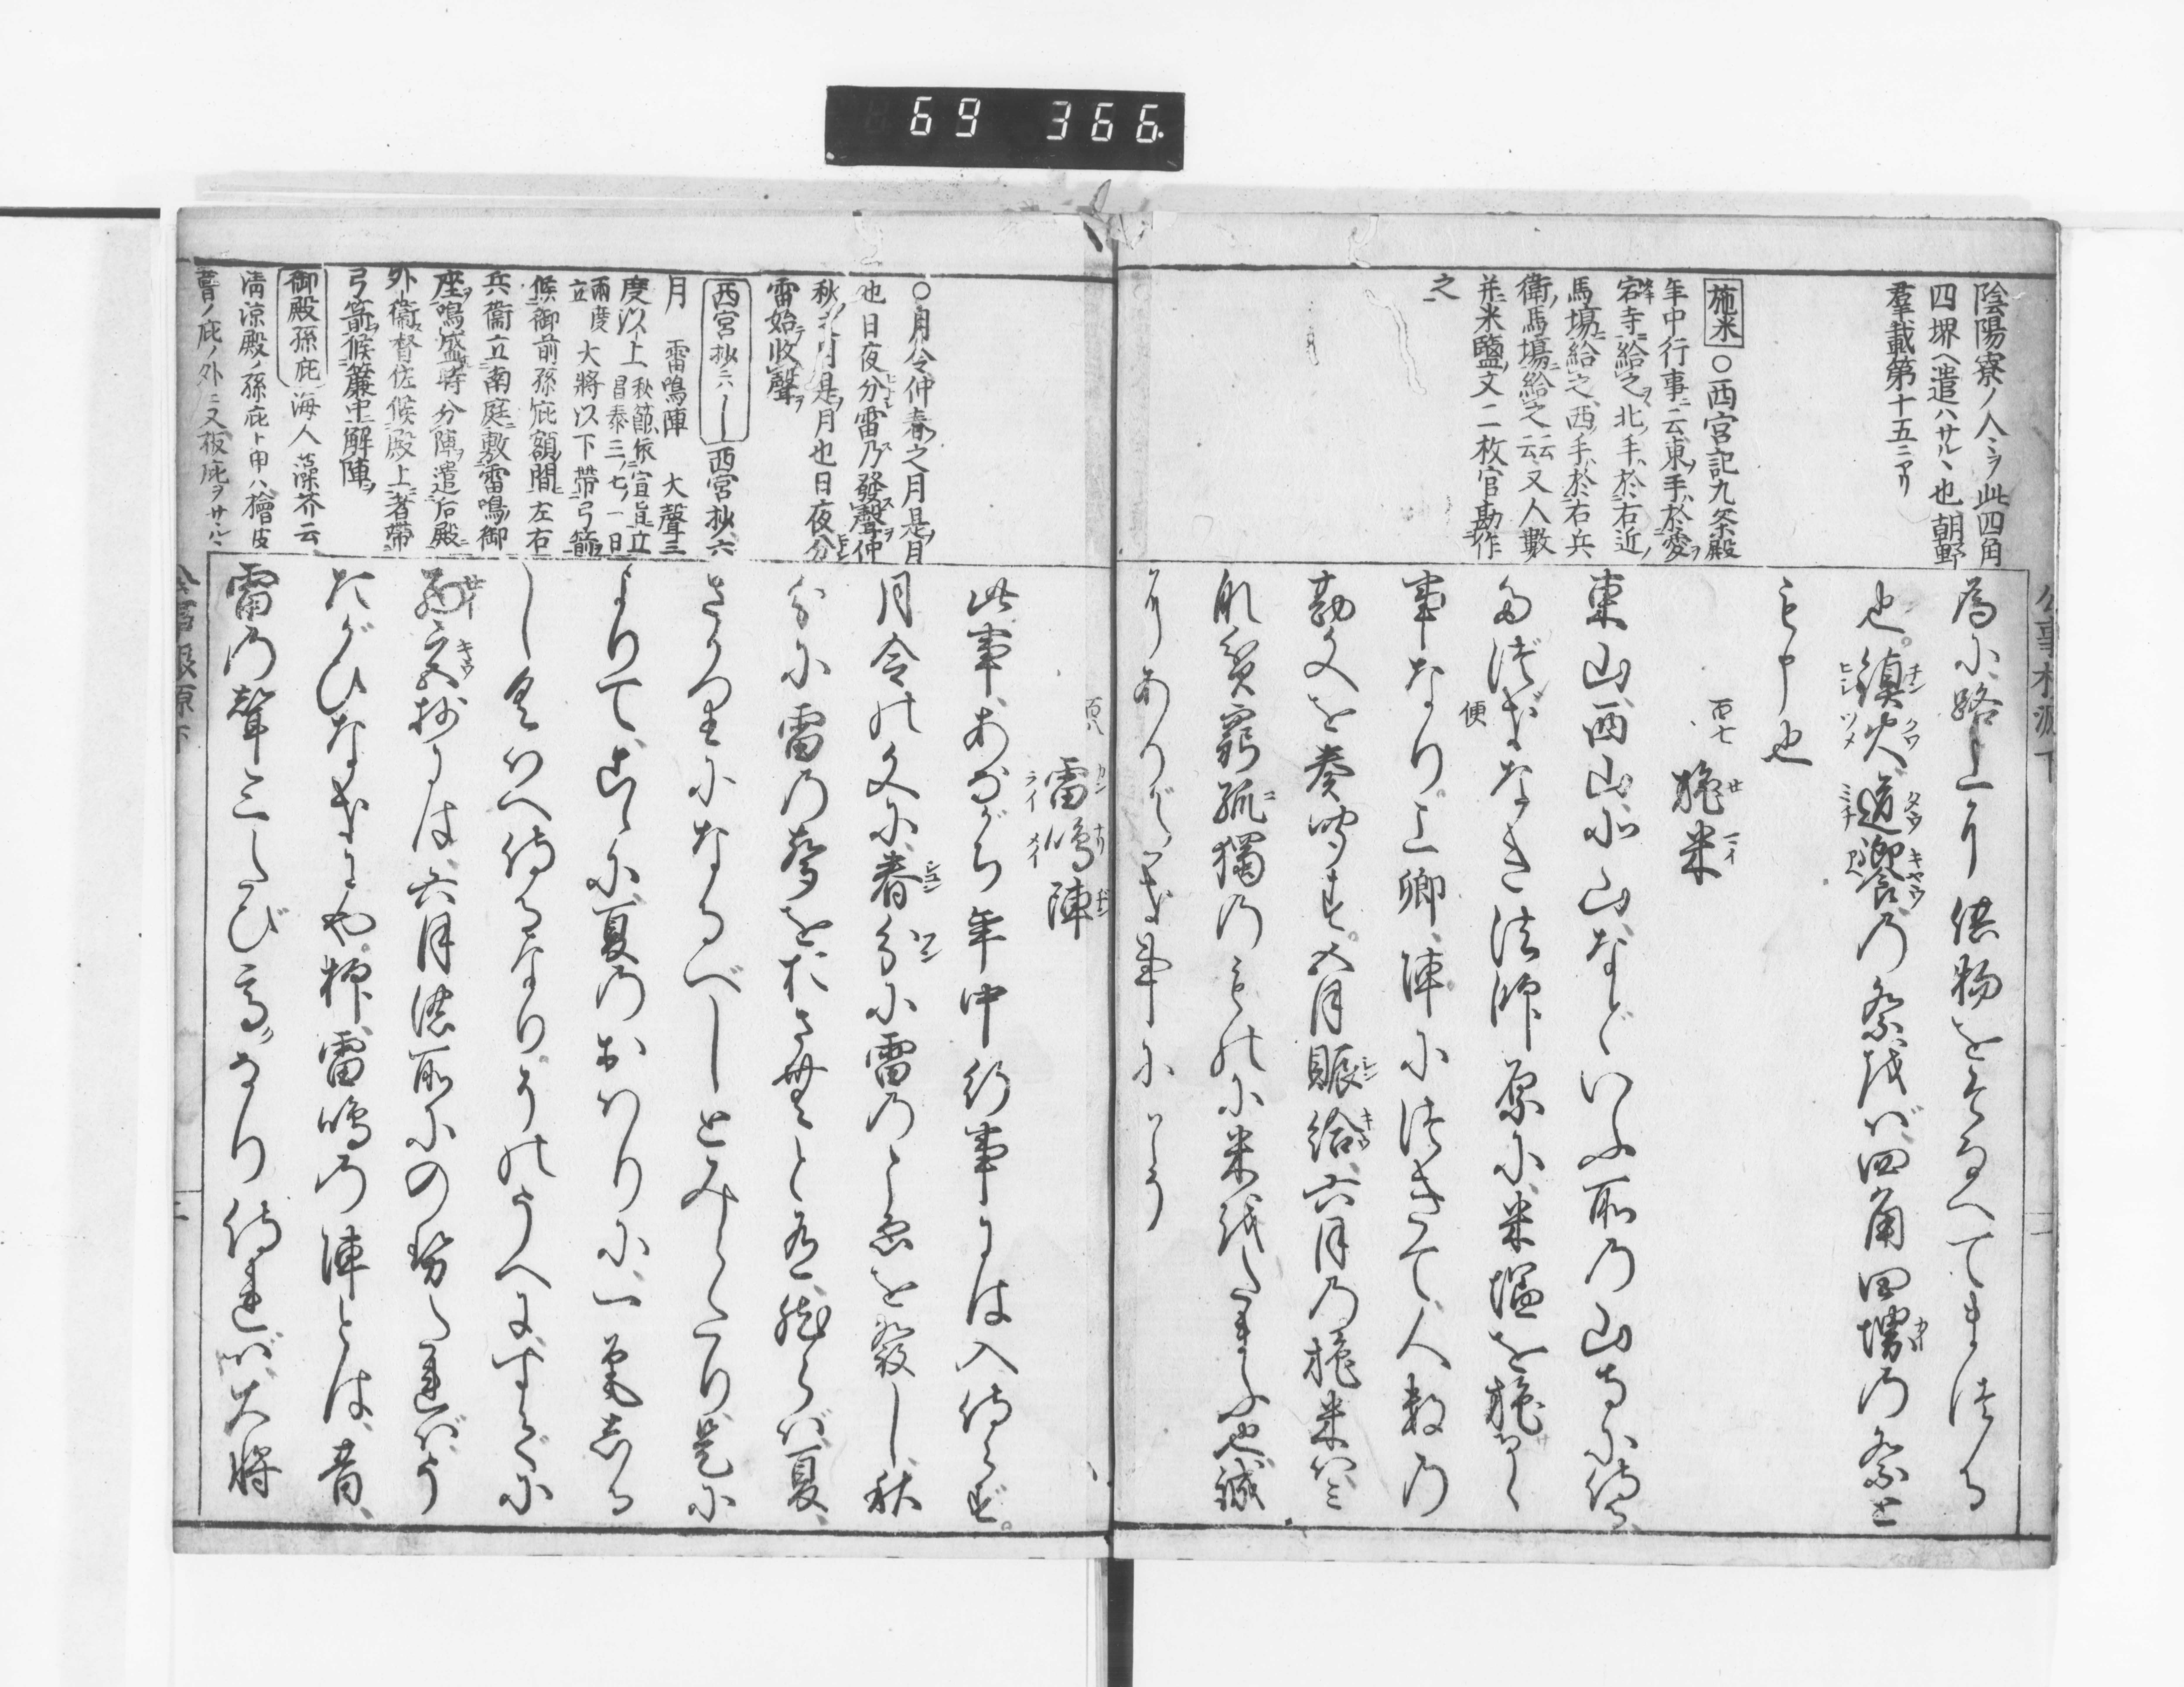 69 366
陰陽寮ノ人ヲ此四角
四堺ヘ遣ハサル丶也朝野
羣載第十五ニアリ
施米 ○西宮記九条殿
年中行事ニ云東ノ手ハ於愛
宕寺給之北ノ手ハ於右近ノ
馬塲給之西ノ手ハ於右兵
衛ノ馬塲給之云云又人數
并米鹽ノ文二枚官勘作
之
為に路上にて供物をそなへてまつる
也。鎮火道饗の祭をば四角四堺の祭と
も申也
百七 施米
東山西山北山などいふ所の山寺に侍る、
たづきなき法師原に米塩を施さるゝ
便
事なり。上卿、陣につきて、人数の
勘文を奏聞す。五月賑給、六月の施米は、ミ
な貧窮孤獨のものに米をたまふ也。誠
にありがたき事にこそ
公事根源下
百八 雷鳴陣
○月令仲春之月是ノ月
也日夜分雷乃發聲仲
秋之月是ノ月也日夜分
雷始收聲
西宮抄六 西宮抄六
月 雷鳴陣 大聲三
度以上 秋節依宣旨立
昌泰三ノ七ノ一日
立兩度 大將以下帶弓箭
候御前孫庇額間左右
兵衞立南庭敷雷鳴御
座鳴盛時分陣遣后殿
外衞督佐候殿上者帶
弓箭候簾中解陣
御殿孫庇 海人藻芥云
清涼殿ノ孫庇ト申ハ檜皮
葺ノ庇ノ外ニ又板庇ヲサシ
此事、あながち年中行事には入侍らず。
月令の文に、春分に雷のこゑを發し、秋
分に雷の聲をおさむと有。然らば夏、
さかりになるべしとみえたり。是に
よりて、こゝに夏のおはりに、一篇しる
しくはへ侍るなり。そのうへに、すでに
西宮抄には、六月法所にの勢たればう
たがひなきにや。抑、雷鳴の陣とは、昔、
雷の聲三たび高なり侍れば、大将
公事根源下